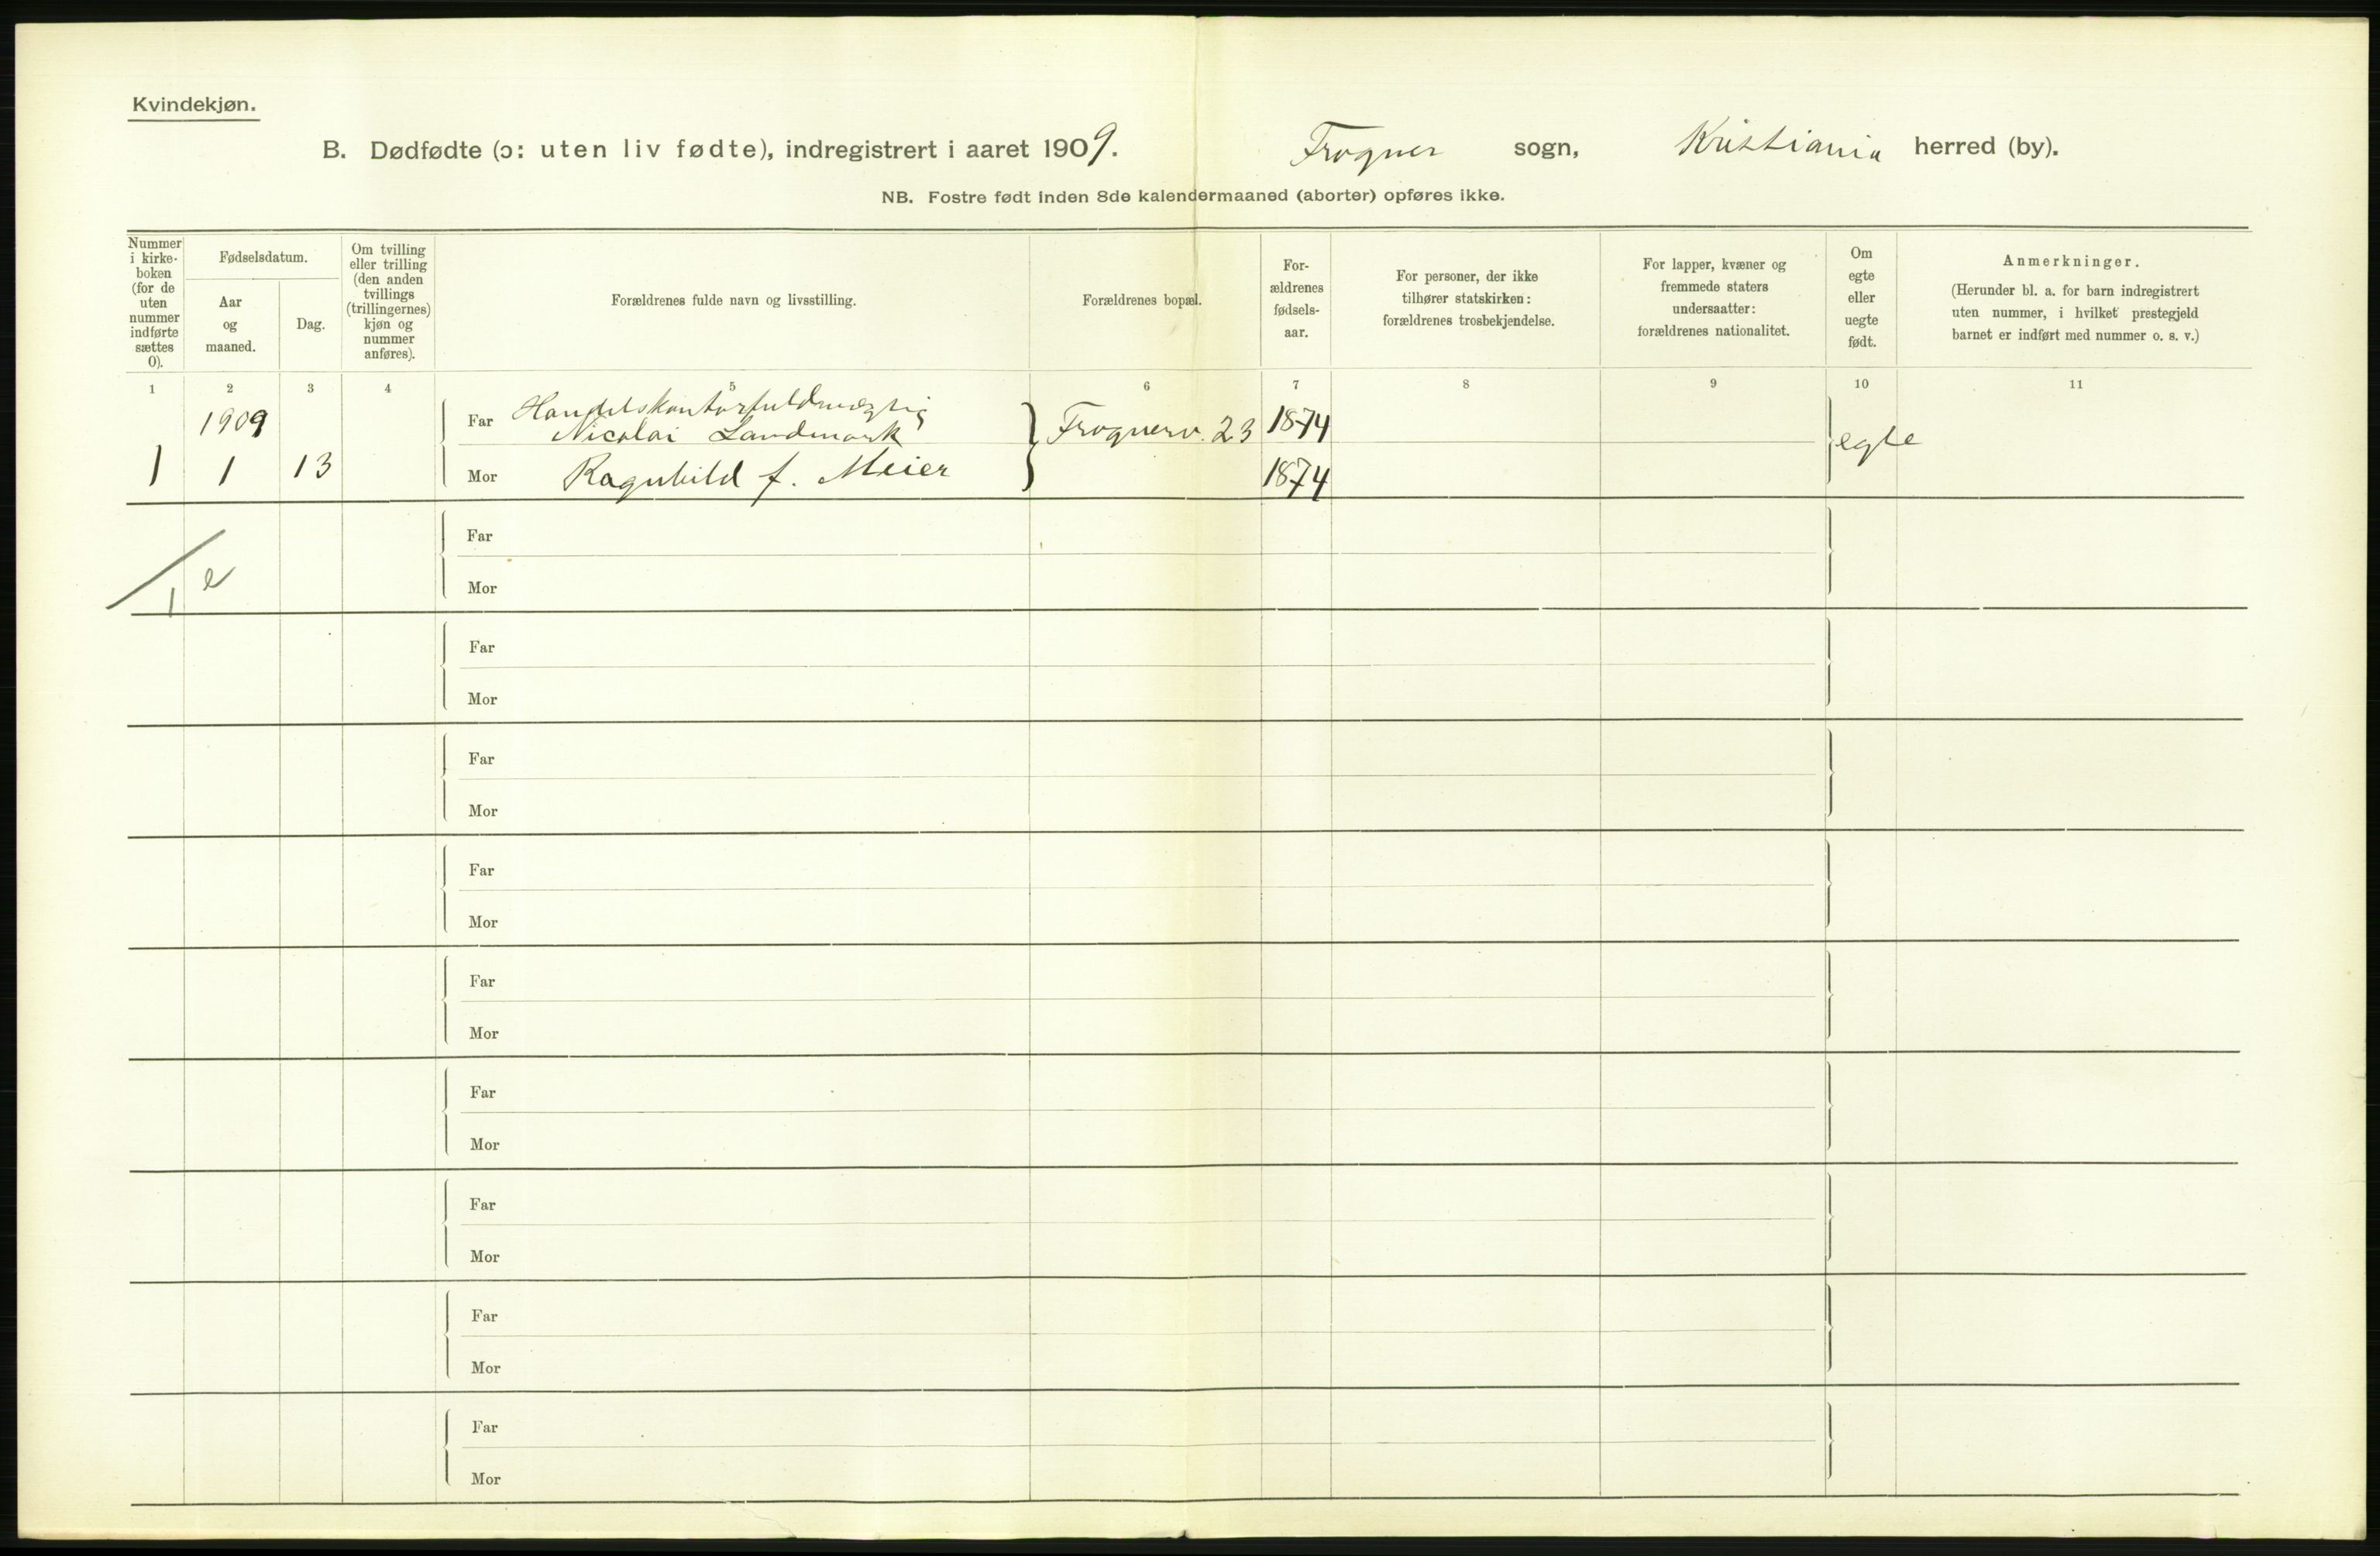 Kvindekjøn.
B. Dødfødte (ɔ: uten liv fødte), indregistrert i aaret 1909. Frogner sogn, Kristiania herred (by).
NB. Fostre født inden 8de kalendermaaned (aborter) opføres ikke.
Nummer
i kirke-
boken
(for de
uten
nummer
indførte
sættes
0).
Fødselsdatum.
Aar
og
maaned.
Dag.
Om tvilling
eller trilling
(den anden
tvillings
(trillingernes)
kjøn og
nummer
anføres).
Forældrenes fulde navn og livsstilling.
Forældrenes bopæl.
For-
ældrenes
fødsels-
aar.
For personer, der ikke
tilhører statskirken:
forældrenes trosbekjendelse.
For lapper, kvæner og
fremmede staters
undersaatter:
forældrenes nationalitet.
Om
egte
eller
uegte
født.
Anmerkninger.
(Herunder bl. a. for barn indregistrert
uten nummer, i hvilket prestegjeld
barnet er indført med nummer o. s. v.)
1 2 3 4 5 6 7 8 9 10 11
1909 Far Handelskontorfuldmægtig
Nicolai Landmark Frognerv. 23 1874 egte
1 1 13 Mor Ragnhild f. Meier 1874
Far
1 e
Mor
Far
Mor
Far
Mor
Far
Mor
Far
Mor
Far
Mor
Far
Mor
Far
Mor
Far
Mor